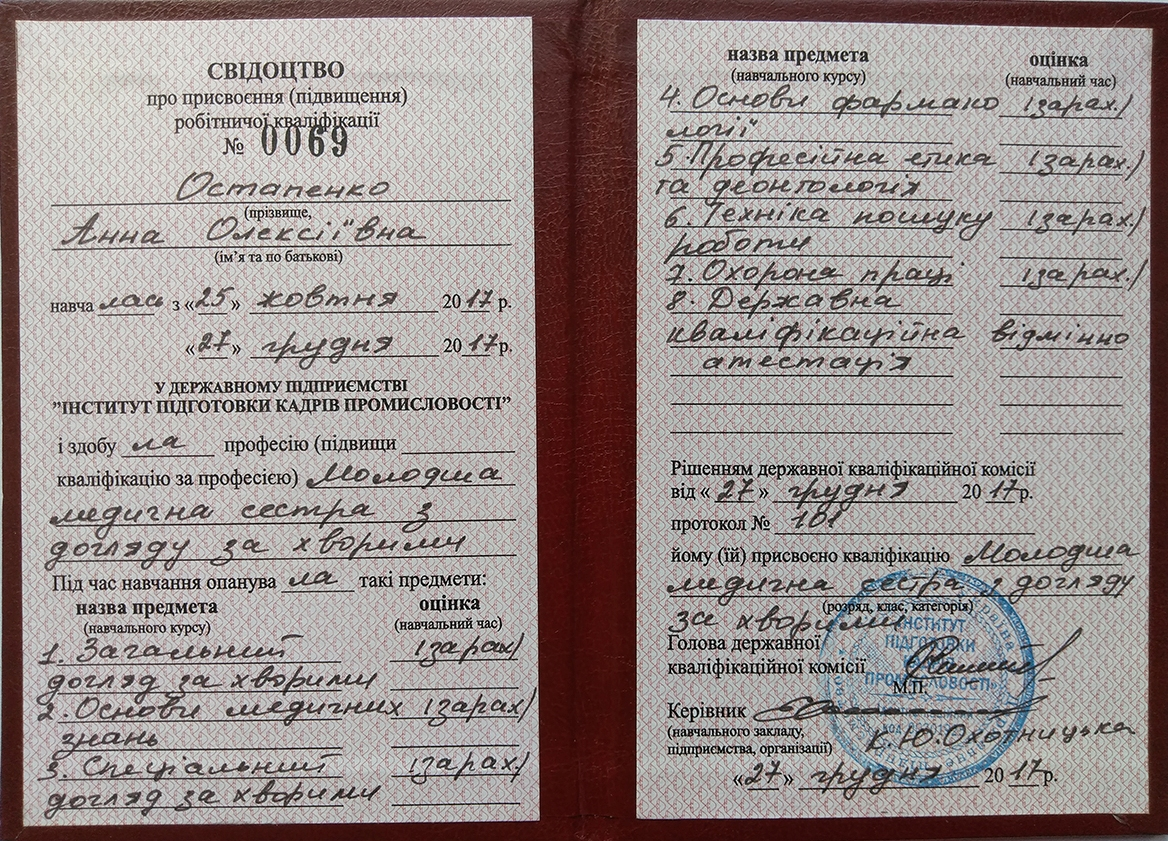 СВІДОЦТВО
про присвоєння (підвищення)
робітничої кваліфікації
№ 0069
Остапенко
(прізвище,
Анна Олексіївна
(ім’я та по батькові)
навча лась з «25» жовтня 2017 р.
«27» грудня 2017р.
У ДЕРЖАВНОМУ ПІДПРИЄМСТВІ
”ІНСТИТУТ ПІДГОТОВКИ КАДРІВ ПРОМИСЛОВОСТІ”
і здобу ла професію (підвищи
кваліфікацію за професією) Молодша
медична сестра з
догляду за хворими
Під час навчання опанува ла такі предмети:
назва предмета оцінка
(навчального курсу) (навчальний час)
1. Загальний (зарах)
догляд за хворими
2. Основи медичних (зарах)
знань
3. Спеціальний (зарах)
догляд за хворими
назва предмета оцінка
(навчального курсу) (навчальний час)
4. Основи фармако (зарах.)
логії
5. Професійна етика (зарах.)
та деонтологія
6. Техніка пошуку (зарах.)
роботи
7. Охорона праці (зарах.)
8. Державна
кваліфікаційна відмінно
атестація
Рішенням державної кваліфікаційної комісії
від «27» грудня 2017р.
протокол № 101
йому (їй) присвоєно кваліфікацію Молодша
медична сестра з догляду
(розряд, клас, категорія)
за хворими
Голова державної
кваліфікаційної комісії
М.П.
ІНСТИТУТ
ПІДГОТОВКИ
ПРОМИСЛОВОСТІ»
Керівник
(навчального закладу,
підприємства, організації) К.Ю.Охотницька
«27» грудня 2017р.